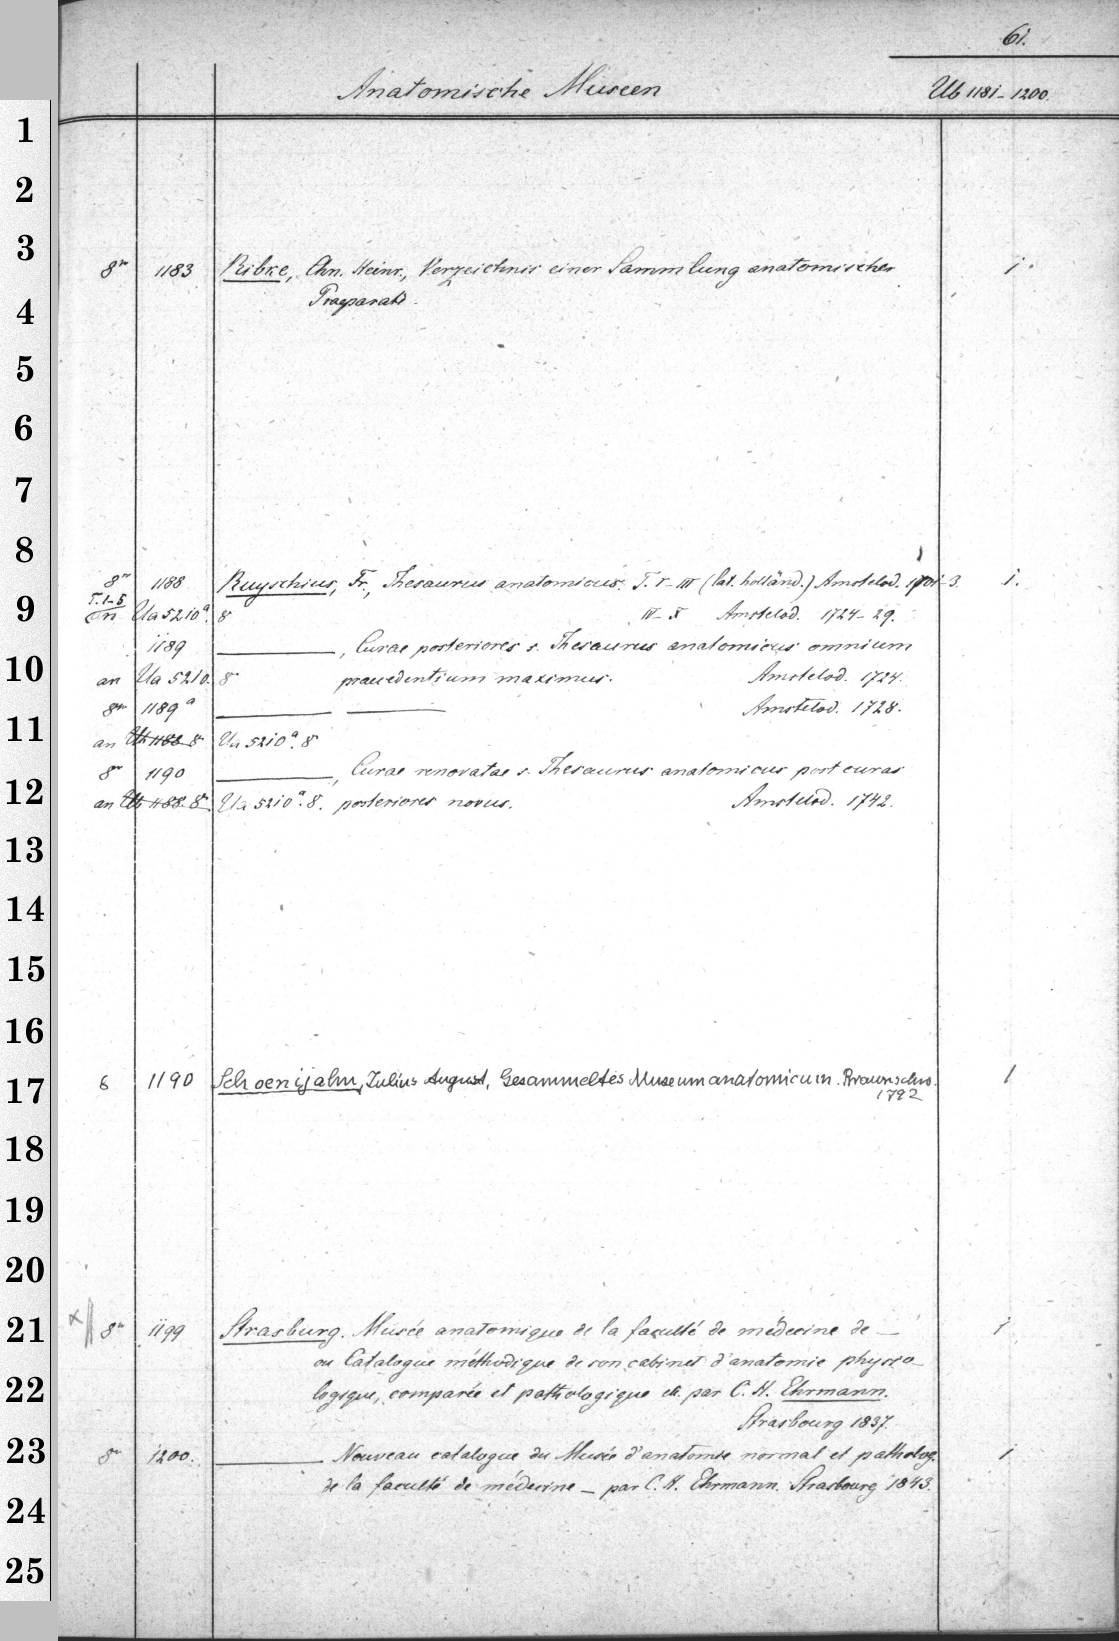 61.
Anatomische Museen Ub 1181-1200.
1
2
3
8° 1183 Ribke, Chn. Heinr., Verzeichnis einer Sammlung anatomischer 1.
4 Praeparate.
5
6
7
8
8° 1188 Ruyschius, Fr., Thesaurus anatomicus. T. I-III (lat. holländ.) Amstelod. 1701-3. 1.
T. 1-5
9 an Ua 5210a. 8 IV-X Amstelod. 1724-29.
1189 ———, Curae posteriores s. Thesaurus anatomicus omnium
10 an Ua 5210. 8° praecedentium maximus. Amstelod. 1724.
8° 1189a ——— ——— Amstelod. 1728.
11 an Ub 1188 8° Ua 5210a. 8°
8° 1190 ———, Curae renovatae s. Thesaurus anatomicus post curas
12 an Ub 1188. 8° Ua 5210a. 8. posteriores novus. Amstelod. 1742.
13
14
15
16
17 6 1190 Schoenijahn, Julius August, Gesammeltes Museum anatomicum. Braunschw. 1
1792
18
19
20
21 8° 1199 Strasburg. Musée anatomique de la faculté de médecine de — 1
ou Catalogue méthodique de son cabinet d'anatomie physio-
22 logique, comparée et pathologique etc. par C. H. Ehrmann.
Strasbourg 1837.
23 8° 1200. ——— Nouveau catalogue du Musée d'anatomie normal et patholog. 1
de la faculté de médecine — par C. H. Ehrmann. Strasbourg 1843.
24
25